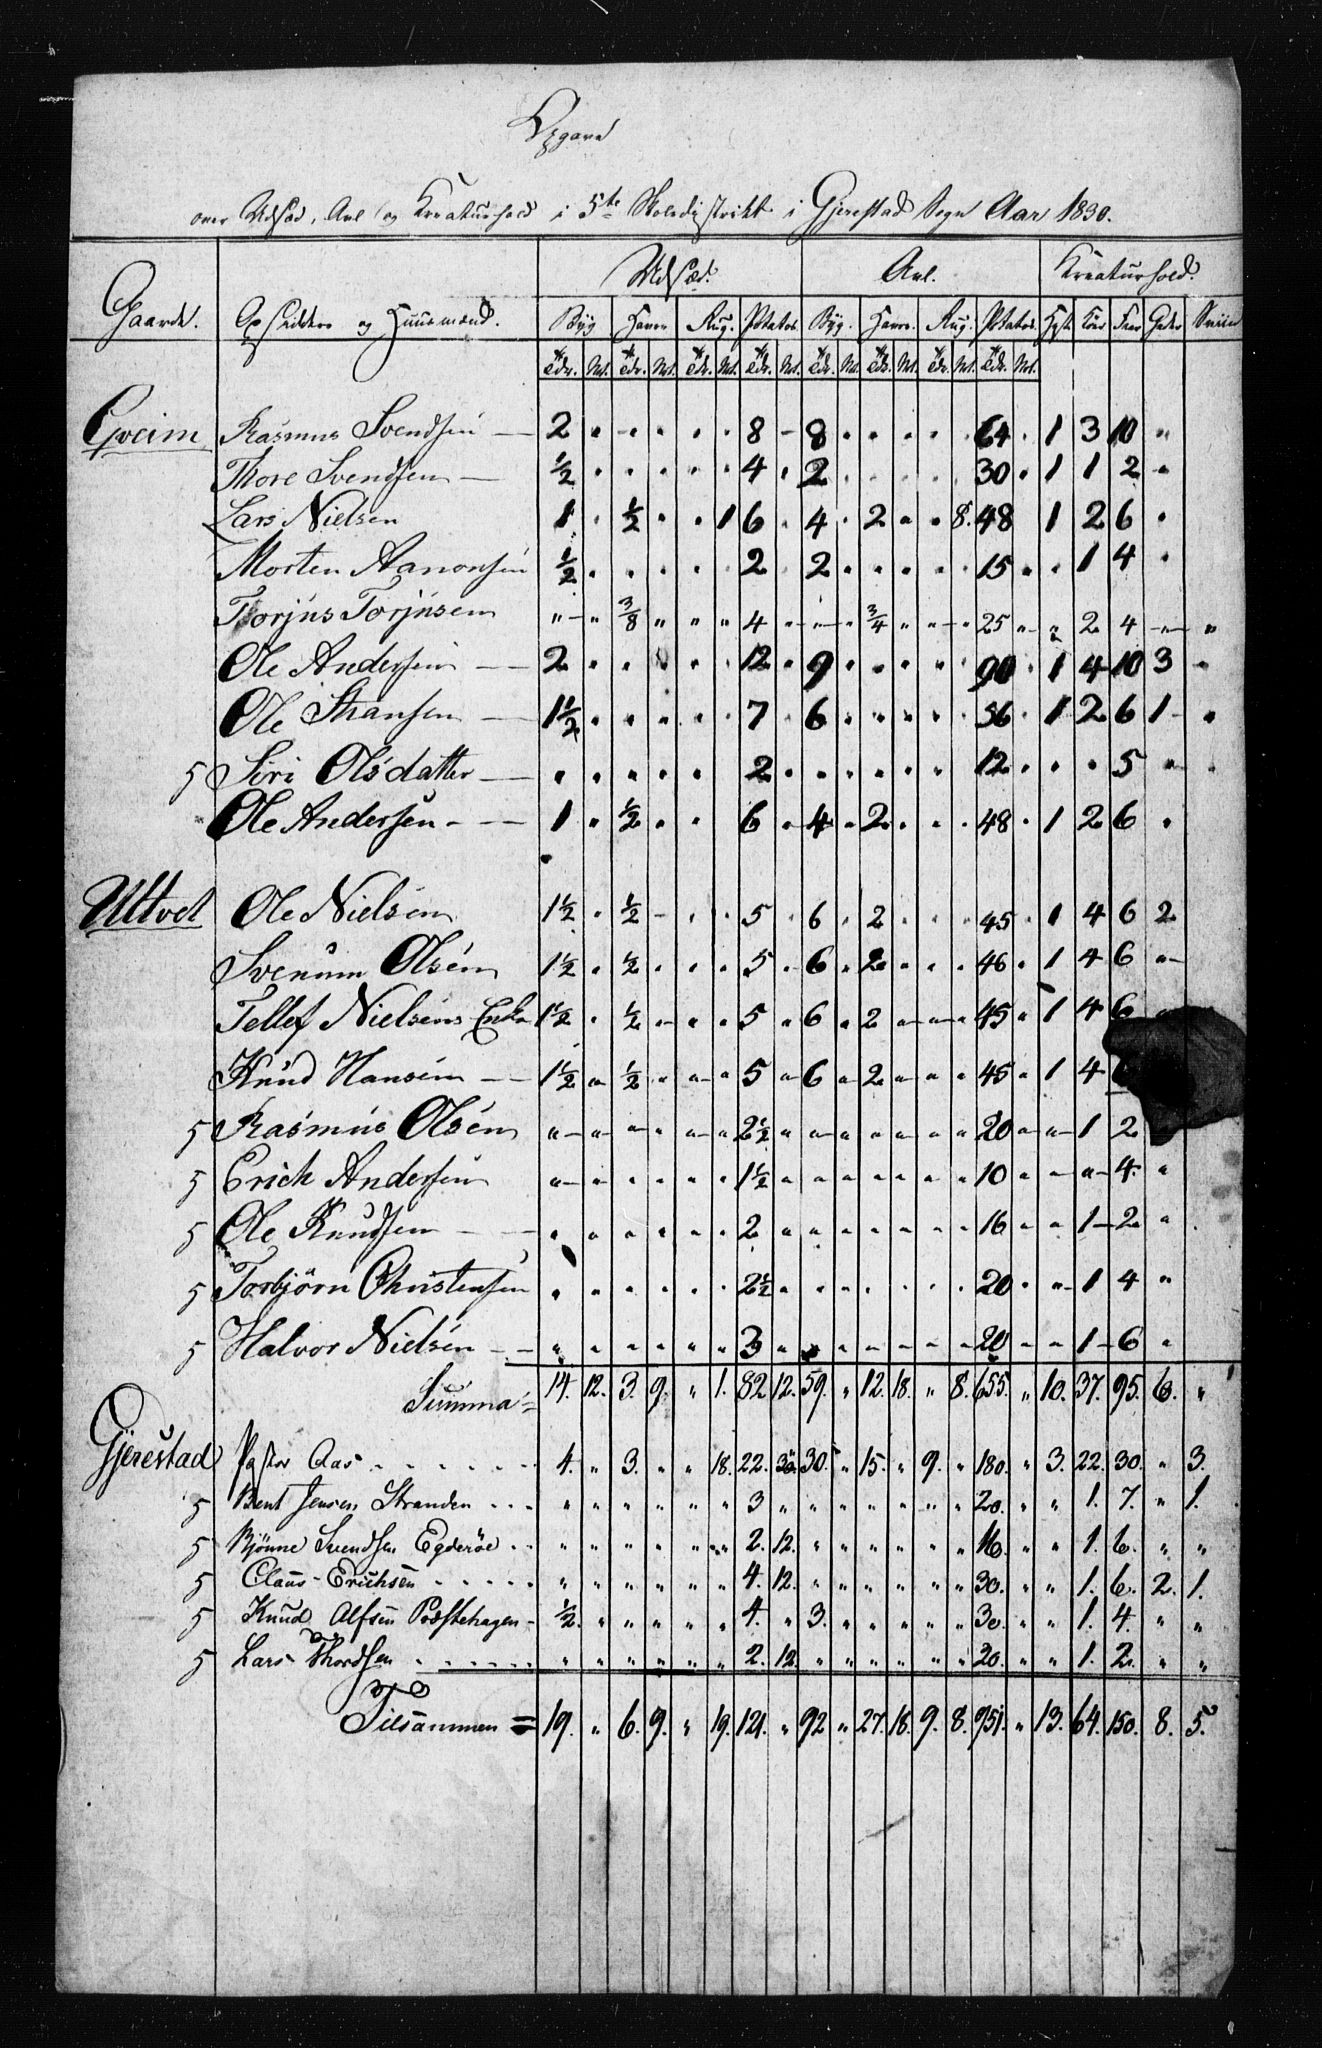 Opgave
over Udsæd, Avl og Kreaturhold i 5te Skoledistrikt i Gjerestad Sogn Aar 1830.
Udsæd. Avl. Kreaturhold.
Gaarde. Opsiddere og Huusmænd. Byg Havre Rug. Potatos. Byg. Havre. Rug. Potatos. Hest. Kiør Faar Geder Sviin
Tdr. Mt. Tdr. Mt. Tdr. Mt. Tdr. Mt. Tdr. Mt. Tdr. Mt. Tdr. Mt. Tdr. Mt.
Qveim Rasmus Svendsen — 2 " - " " " 8 - 8 " " " " " 64 " 1 3 10 "
Thore Svendsen — ½ " " " " " 4 " 2 " " " " " 30 " 1 1 2 "
Lars Nielsen 1 " ½ " " 1 6 " 4 " 2 " " 8. 48 1 2 6 "
Morten Aanonsen ½ " " " " " 2 " 2 " " " " " 15 " " 1 4 "
Torjus Torjusen " " 3/8 " " " 4 " " " 3/4 " " " 25 " " 2 4 " "
Ole Andersen — 2 " " " " " 12 " 9 " " " " " 90 " 1 4 10 3 "
Ole Hansen — 1½ " " " " " 7 " 6 " " " " " 56 " 1 2 6 1 "
5 Siri Olsdatter — " " " " " 2 " " " " " " " 12 " " " 5 " "
Ole Andersen — 1 " ½ " " 6 " 4 " 2 " " " 48 " 1 2 6 "
Ultvet Ole Nielsen 1½ " ½ " " " 5 " 6 " 2 " " " 45 " 1 4 6 2
Svenum Olsen 1½ " ½ " " " 5 " 6 " 2 " " " 46 " 1 4 6 "
Tellef Nielsens Enke 1½ " ½ " " " 5 " 6 " 2 " " " 45 " 1 4 6 "
Knud Hansen — 1½ " ½ " " " 5 " 6 " 2 " " " 45 " 1 4
5 Rasmus Olsen " " " " " " 2½ " " " " " " " 20 " " 1 2
5 Erich Andersen " " " " " " 1½ " " " " " " " 10 " " " 4 "
5 Ole Knudsen — " " " " " " 2 " " " " " " " 16 " " 1 2 "
5 Torbjörn Christensen " " " " " " 2½ " " " " " " " 20 " " 1 4 "
5 Halvor Nielsen — " " " " " " 3 " " " " " " " 20 " " 1 6 "
Summa = 14. 12. 3. 9. " 1. 82 12. 59. " 12. 18. " 8. 655. " 10. 37. 95. 6. "
Gjerestad Pastor Aas . . . . 4. " 3. " " 18. 22. 30. " 15. " 9. " 180. " 3. 22. 30. " 3.
5 Bent Jensen Stranden . . . " " " " " " 3 " " " " " " " 20. " " 1. 7. " 1.
5 Bjönne Svendsen Egderöe . . " " " " " " 2. 12. " " " " " " 16. " " 1. 6. " "
5 Claus Erichsen . . . . " " " " " " 4. 12. " " " " " " 30. " " 1. 6. 2. 1.
5 Knud Alfsen Præstehagen - ½. " " " " " 4. " 3. " " " " " 30. " " 1. 4. " "
5 Lars Thordsen . . . . " " " " " " 2. 12. " " " " " " 20. " " 1. 2. " "
Tilsammen = 19. " 6. 9. " 19. 121. " 92 " 27. 18. 9. 8. 951. " 13. 64. 150. 8. 5.